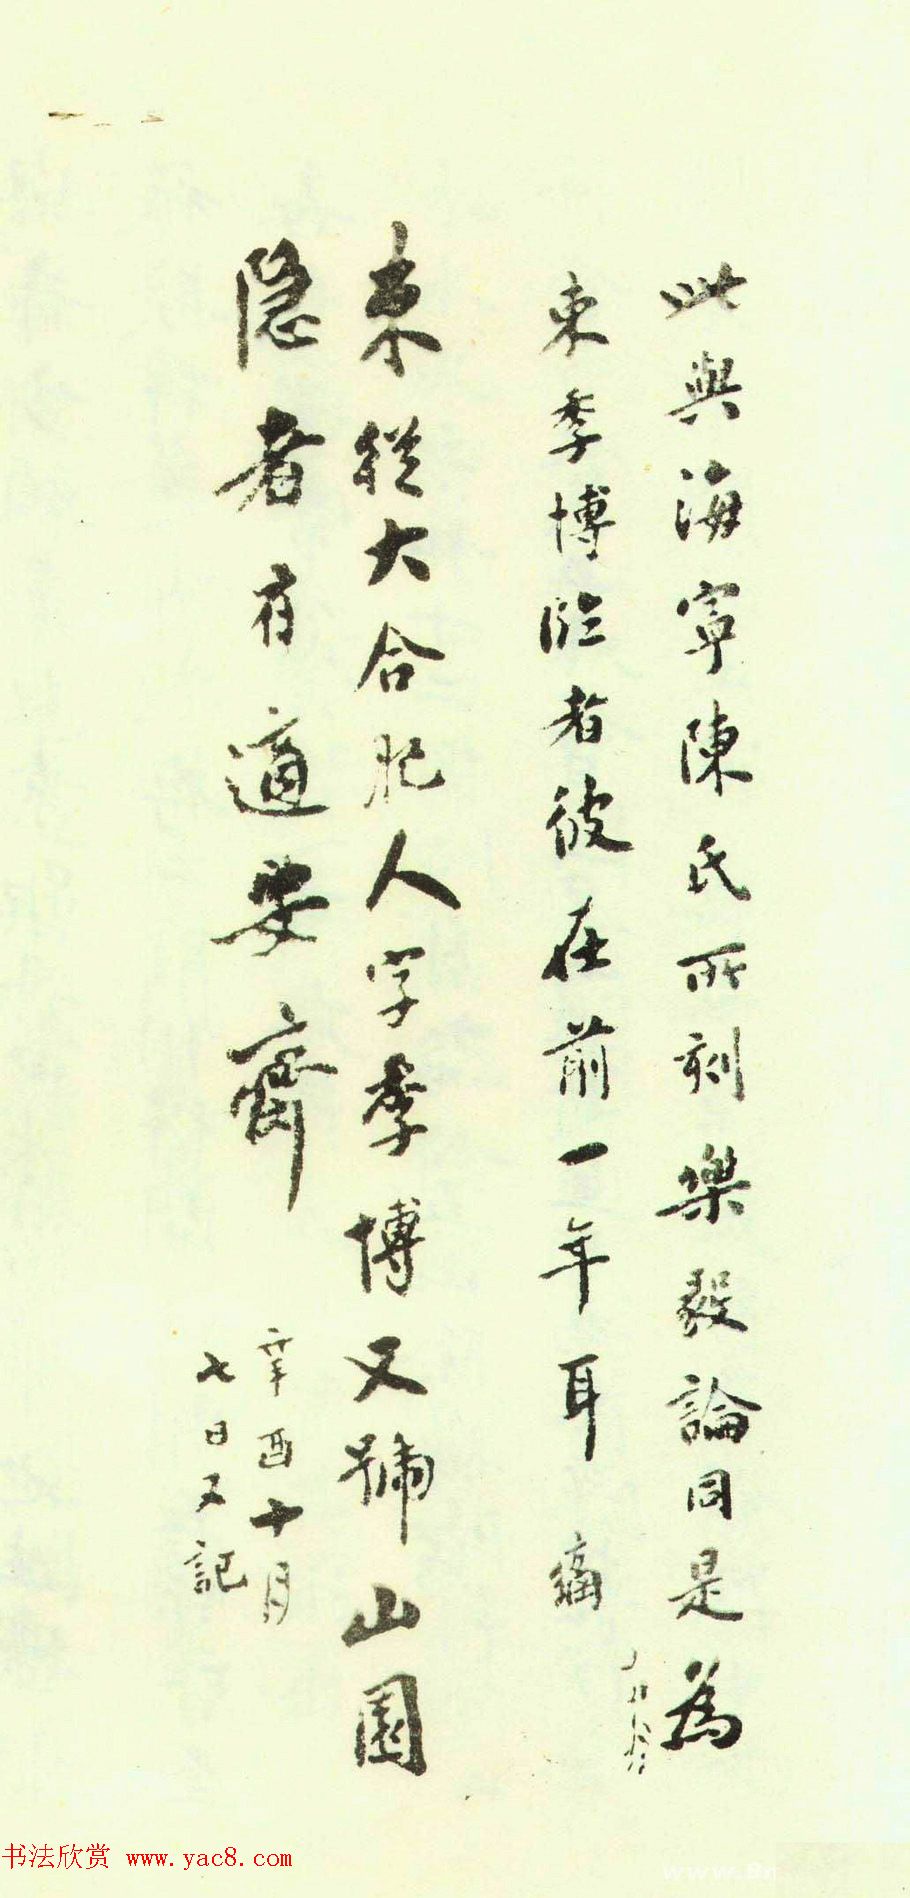 此與海寧陳氏所刻樂毅論同是為
束季博臨者彼在前一年耳
束從大合肥人字季博又號山園
隐者有適安齋
辛酉十月
七日又記
书法欣赏 www.yac8.com